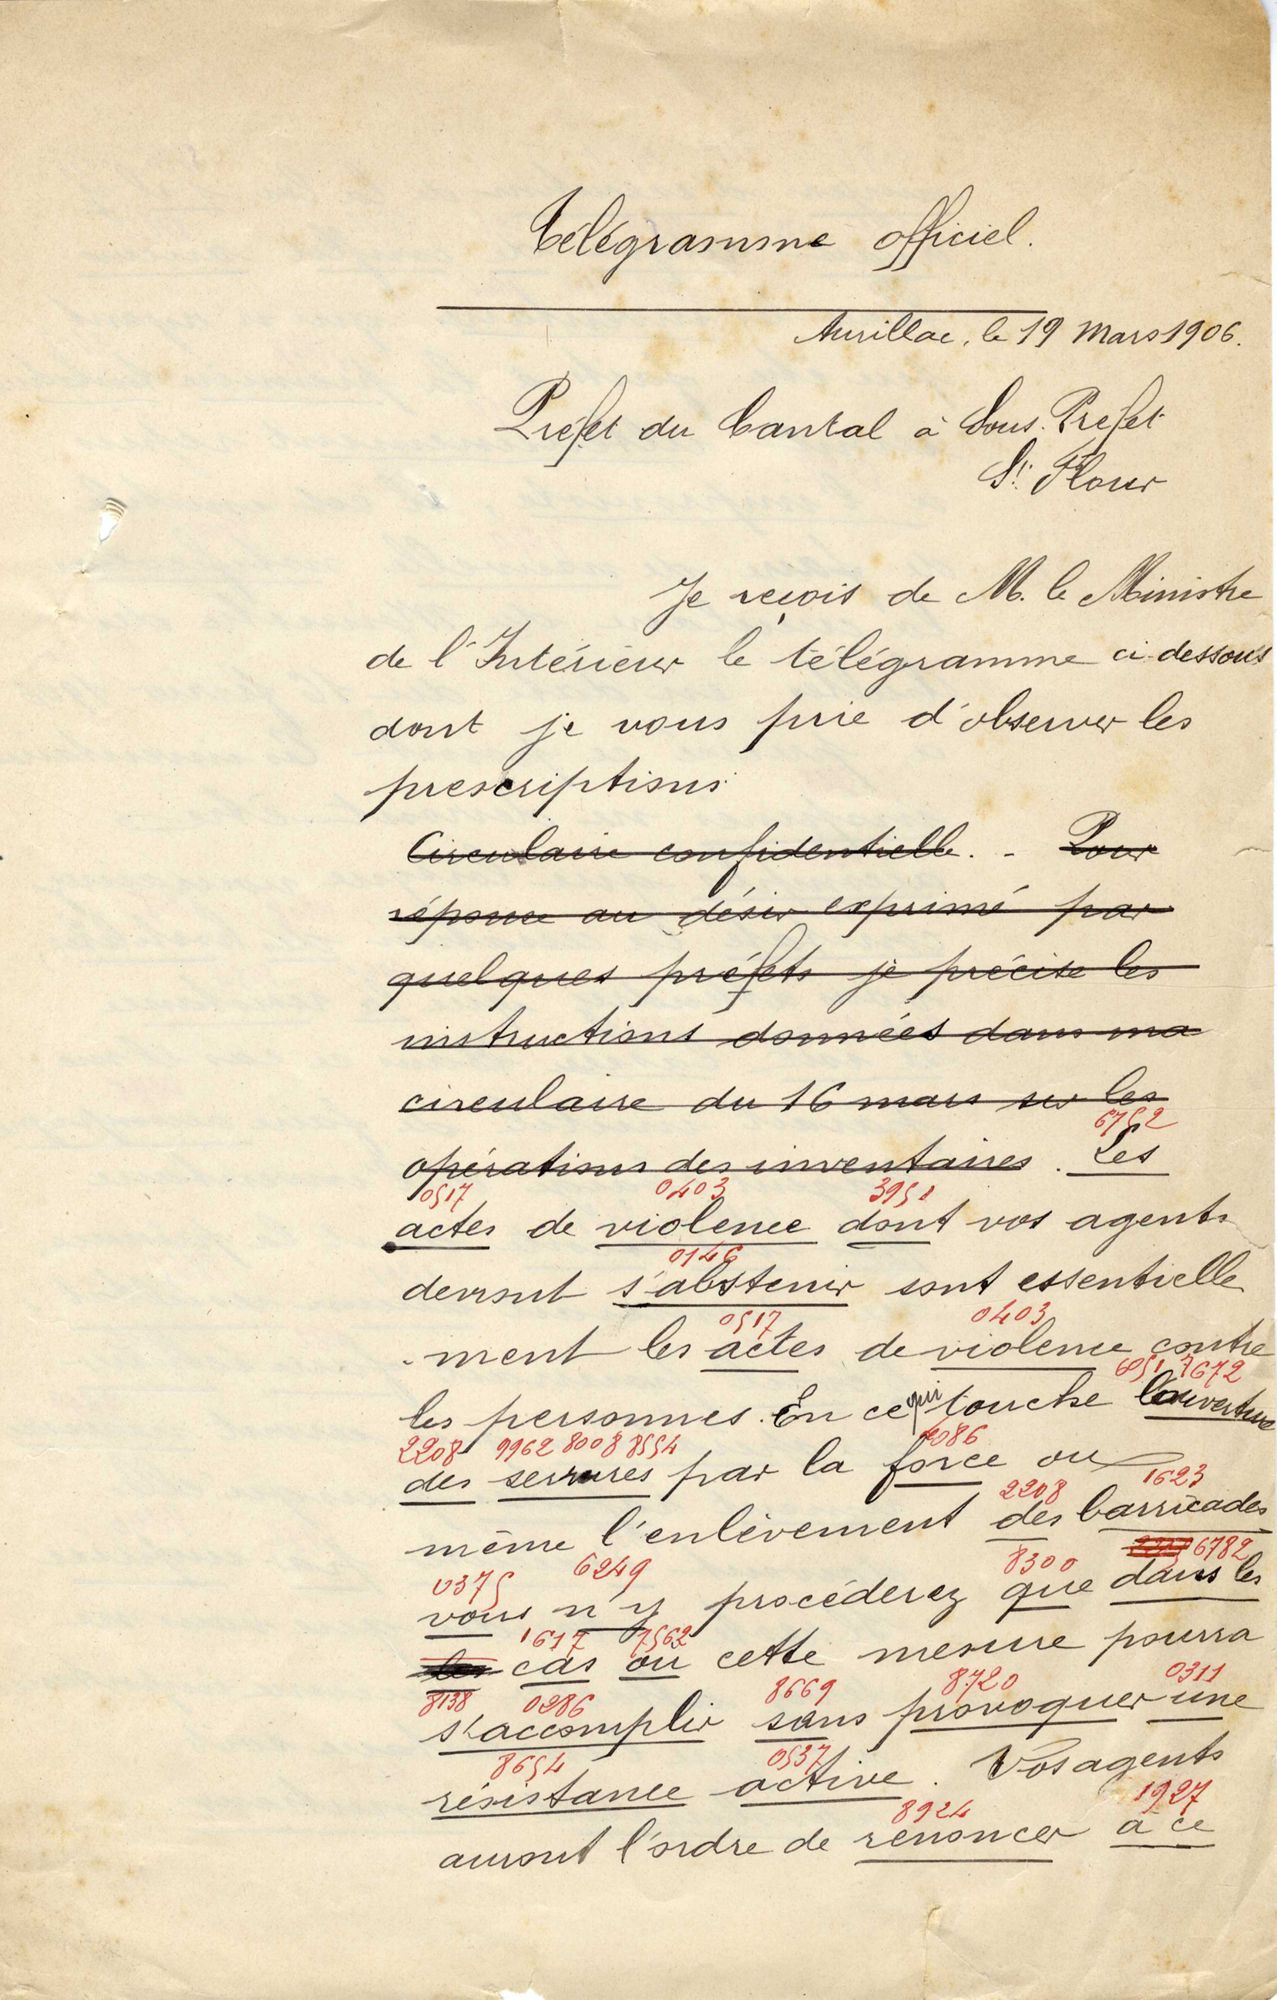 Télégramme officiel.
Aurillac, le 19 Mars 1906.
Préfet du Cantal à Sous-Préfet
St Flour
Je reçois de M. le Ministre
de l'Intérieur le télégramme ci-dessous
dont je vous prie d'observer les
prescriptions:
Circulaire confidentielle. - Pour
réponse au désir exprimé par
quelques préfets je précise les
instructions données dans ma
circulaire du 16 mars sur les
6752
opérations des inventaires. Les
0517 0403 3951
actes de violence dont vos agents
0146
devront s'abstenir sont essentielle
0517 0403
-ment les actes de violence contre
6051 7672
les personnes. En ce qui touche l'ouverture
2208 9962 8008 8554 4086
des serrures par la force ou
2208 1623
même l'enlèvement des barricades
0375 6249 8300 6782
vous n'y procéderez que dans les
1617 7562
les cas où cette mesure pourra
8138 0286 8669 8720 0311
s'accomplir sans provoquer une
8654 0537
résistance active. Vos agents
8924 1927
auront l'ordre de renoncer à ce